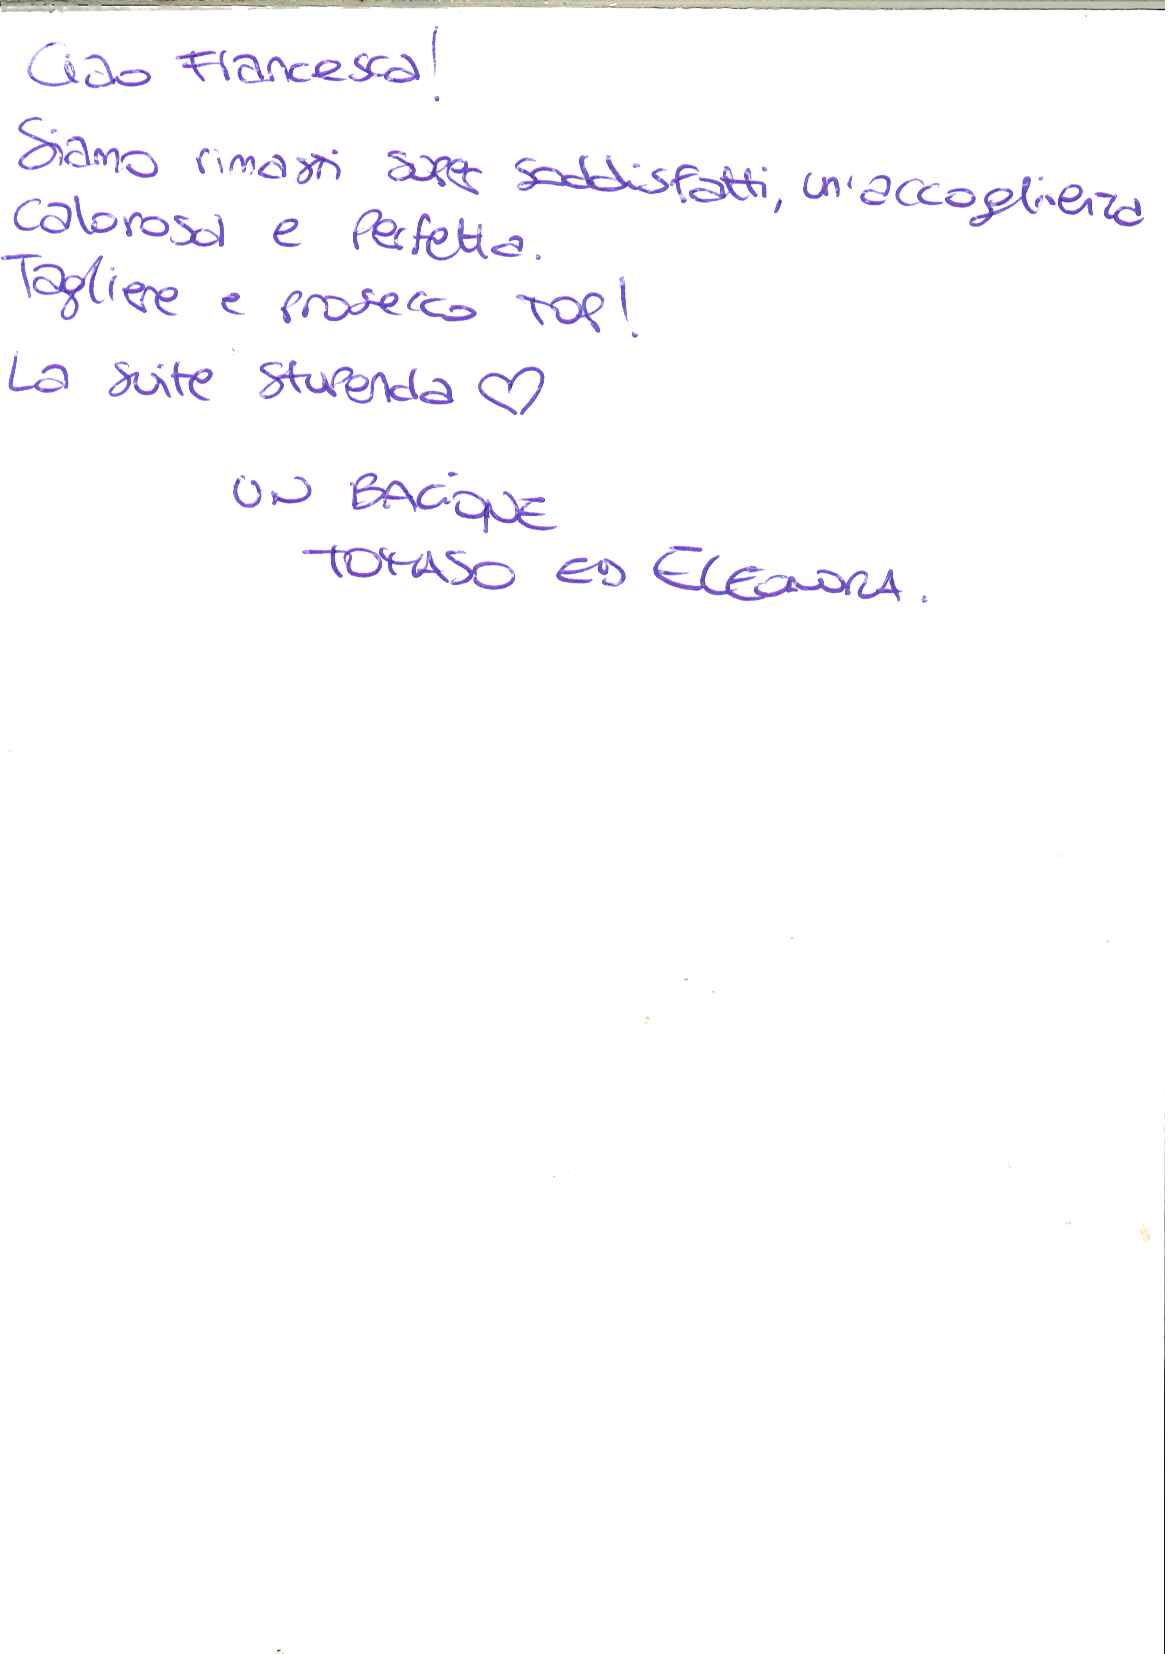 Ciao Francesca!
Siamo rimasti super soddisfatti, un'accoglienza
calorosa e perfetta.
Tagliere e prosecco TOP!
La suite stupenda ♡
UN BACIONE
TOMASO ED ELEONORA.